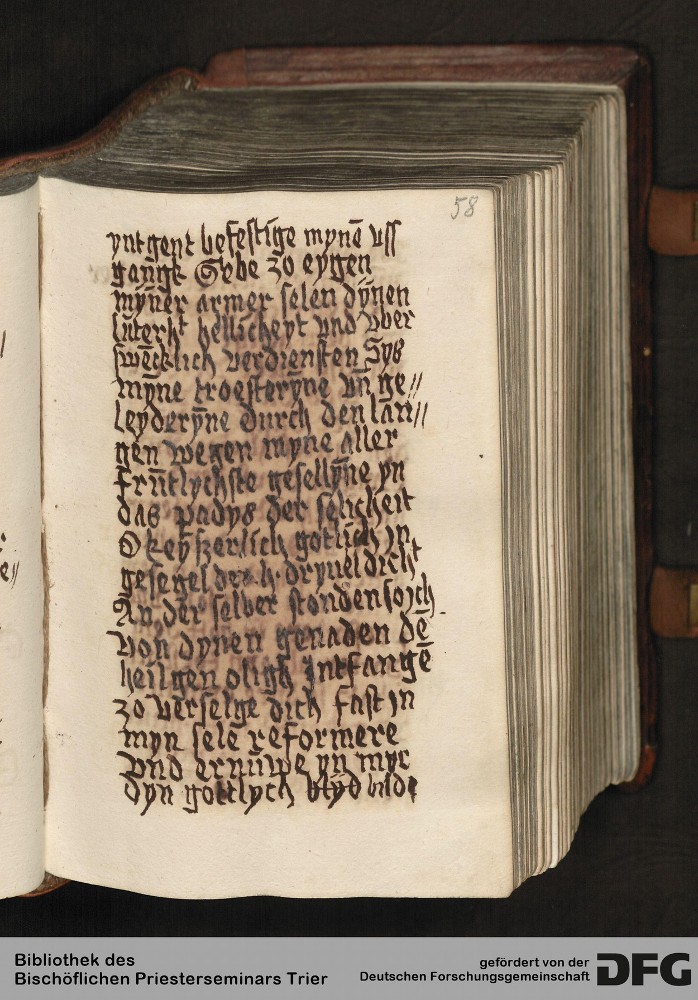 58
yntgent befestige mynē uss
gangk Gebe zo eygen
myner armer selen dynen
luterkt hellicheyt und vber
swēcklich verdiensten Sys
myne troesterÿne vn̄ ge//
leyderÿne durch den lan//
gen wegen myne aller
frūtlychste gesellÿne yn
das padys der selicheit
O keyszerlich gotlich in
gesegel der h. dryueldicht
An der selber stonden so ich
von dynen genaden dē
heilgen oligh Intfangē
zo verselge dich fast in
myn sele reformere
vnd ernuwe yn myr
dyn gottlych blyd bilde
Bibliothek des
Bischöflichen Priesterseminars Trier
gefördert von der
Deutschen Forschungsgemeinschaft
DFG